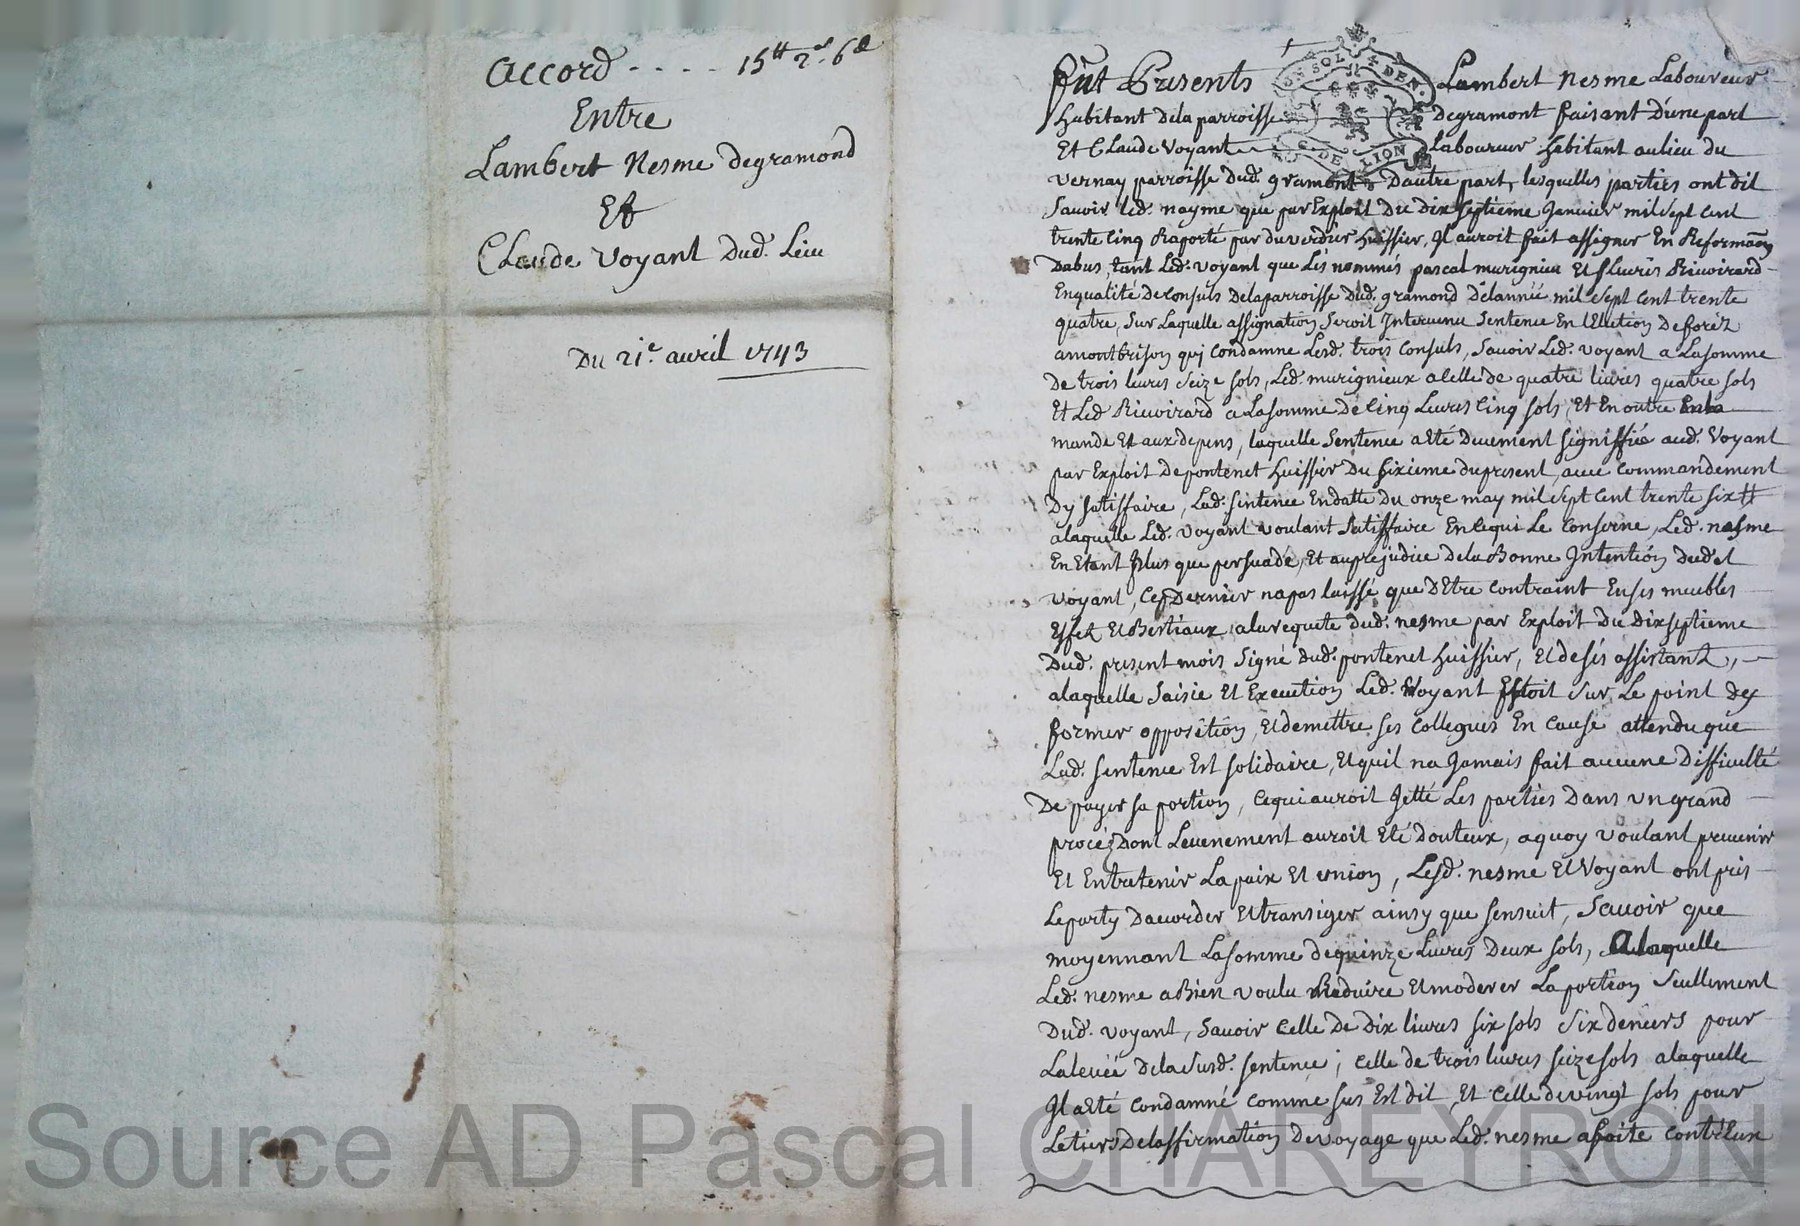 Accord - - - - 15tt 2s 6d
Entre
Lambert Nesme degramond
Et
Claude Voyant Dud. Lieu
Du 21e. avril 1743
fût Presents Lambert Nesme Laboureur
habitant dela parroisse degramont faisant d'une part
Et Claude Voyant Laboureur habitant au lieu du
Vernay parroisse dud. gramont Dautre part, lesquelles parties ont dit
Savoir led. nayme que par Exploit Du Dix septieme Janvier mil sept cent
trente Cinq Raporté par duverdier huissier, Il auroit fait assigner En Reformaon
Dabus, tant Led. Voyant que Les nommés pascal murignieu Et fleuris Rivoirard
Enqualité de Consuls Delaparroisse Dud. gramond Délannée mil sept cent trente
quatre, Sur Laquelle assignation Seroit Intervenu Sentence En lElection De foréz
amontbrison qui Condamne Lesd. trois Consuls, Savoir Led. Voyant a Lasomme
De trois livres Seize sols, Led. murignieux aCelle de quatre livres quatre sols
Et Led Rivoirard a Lasomme de Cinq Livres Cinq sols, Et En outre
mande Et aux depens, laquelle Sentence a Eté Duement signiffiée aud. Voyant
par Exploit De pontenet huissier Du sixieme du present, avec Commandement
Dy satisfaire, Lad. sentence Endatte du onze may mil sept Cent trente six tt
alaquelle Led. Voyant voulant Satisffaire En Cequi Le Conserne, Led. nesme
En Etant plus que persuadé, Et au prejudice dela Bonne Intention dudit
Voyant, Ce Dernier napas laissé que DEtre Contraint En ses meubles
Effet Et Bestiaux, alarequete Dud. nesme par Exploit Du dixseptieme
Dud. present mois Signé dud. pontenet huissier, Et de ses assistant,
alaquelle Saisie Et Execution Led. Voyant Estoit Sur Le point dy
former opposition, Et demettre ses Collegues En Cause attendu que
Lad. sentence Est solidaire, Et quil na Jamais fait aucune Difficulté
De payer sa portion, Cequi auroit Jetté Les parties Dans un grand
procez Dont Levenement auroit Eté Douteux, a quoy voulant prevenir
Et Entretenir La paix Et union, Lesd. nesme Et Voyant ont pris
Leparty Daccorder Et transiger ainsy que sensuit, Savoir que
moyennant Lasomme de quinze Livres Deux sols, Alaquelle
Led. nesme a Bien voulu Reduire Et moderer La portion Seullement
Dud. Voyant, Savoir Celle De Dix livres six sols Six deniers pour
La levée Dela Susd. sentence; Celle de trois livres seize sols alaquelle
Il a Eté Condamné Comme sus Est dit, Et Celle de vingt sols pour
Le tiers Delaffirmation de voyage que Led. nesme afaite Contreux
CONSOL DEN.
G. DE LION
Source AD Pascal CHAREYRON